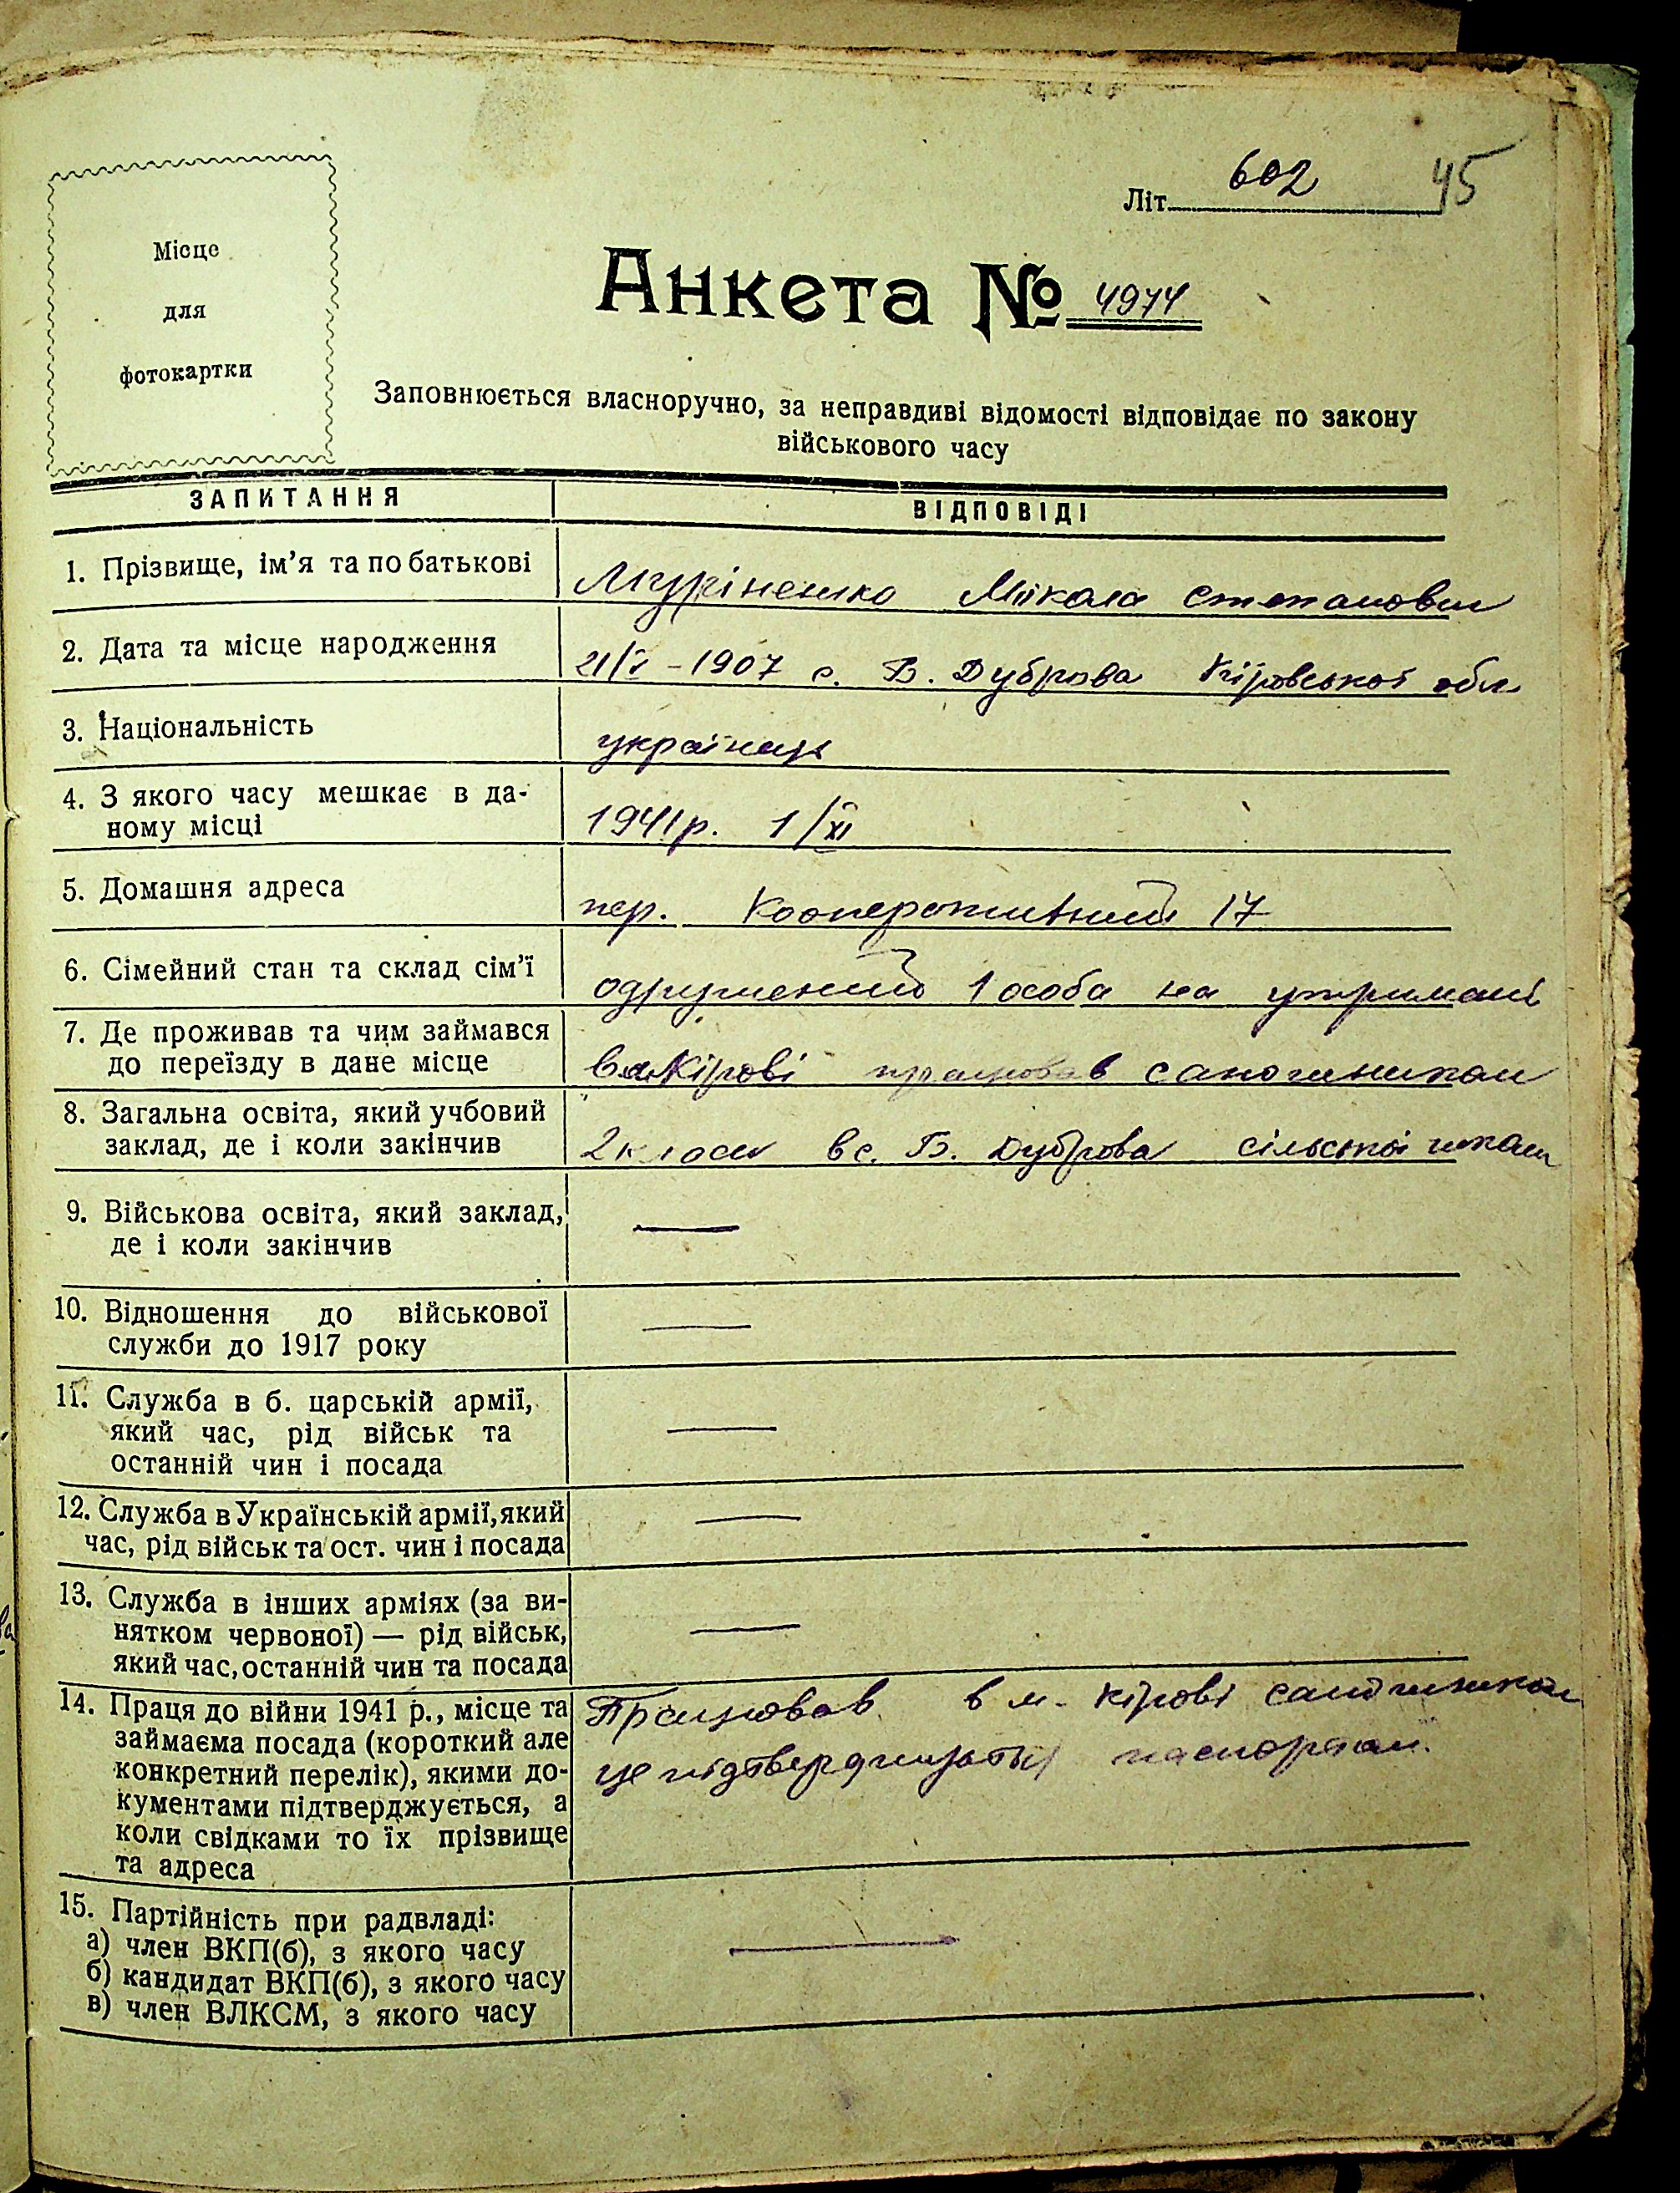 602 45
Літ
Місце
для
фотокартки
Анкета № 4974
Заповнюється власноручно, за неправдиві відомості відповідає по закону
військового часу
ЗАПИТАННЯ ВІДПОВІДІ
1. Прізвище, ім'я та по батькові Мікола Степанович
2. Дата та місце народження 21/I - 1907 с. Б. Дуброва Кіровської обл.
3. Національність українець
4. З якого часу мешкає в да-
ному місці 1941р. 1/XI
5. Домашня адреса пер. Кооперативний 17
6. Сімейний стан та склад сім'ї одружений 1 особа на утримані
7. Де проживав та чим займався
до переїзду в дане місце в м. Кірові працював сапожником
8. Загальна освіта, який учбовий
заклад, де і коли закінчив 2 класи в с. Б. Дуброва сільської школи
9. Військова освіта, який заклад,
де і коли закінчив —
10. Відношення до військової
служби до 1917 року —
11. Служба в б. царській армії,
який час, рід військ та
останній чин і посада —
12. Служба в Українській армії, який
час, рід військ та ост. чин і посада —
13. Служба в інших арміях (за ви-
нятком червоної) — рід військ,
який час, останній чин та посада —
14. Праця до війни 1941 р., місце та Працював в м. Кірові сапожником
займаєма посада (короткий але це підтверджується паспортом.
конкретний перелік), якими до-
кументами підтверджується, а
коли свідками то їх прізвище
та адреса
15. Партійність при радвладі:
а) член ВКП(б), з якого часу —
б) кандидат ВКП(б), з якого часу
в) член ВЛКСМ, з якого часу